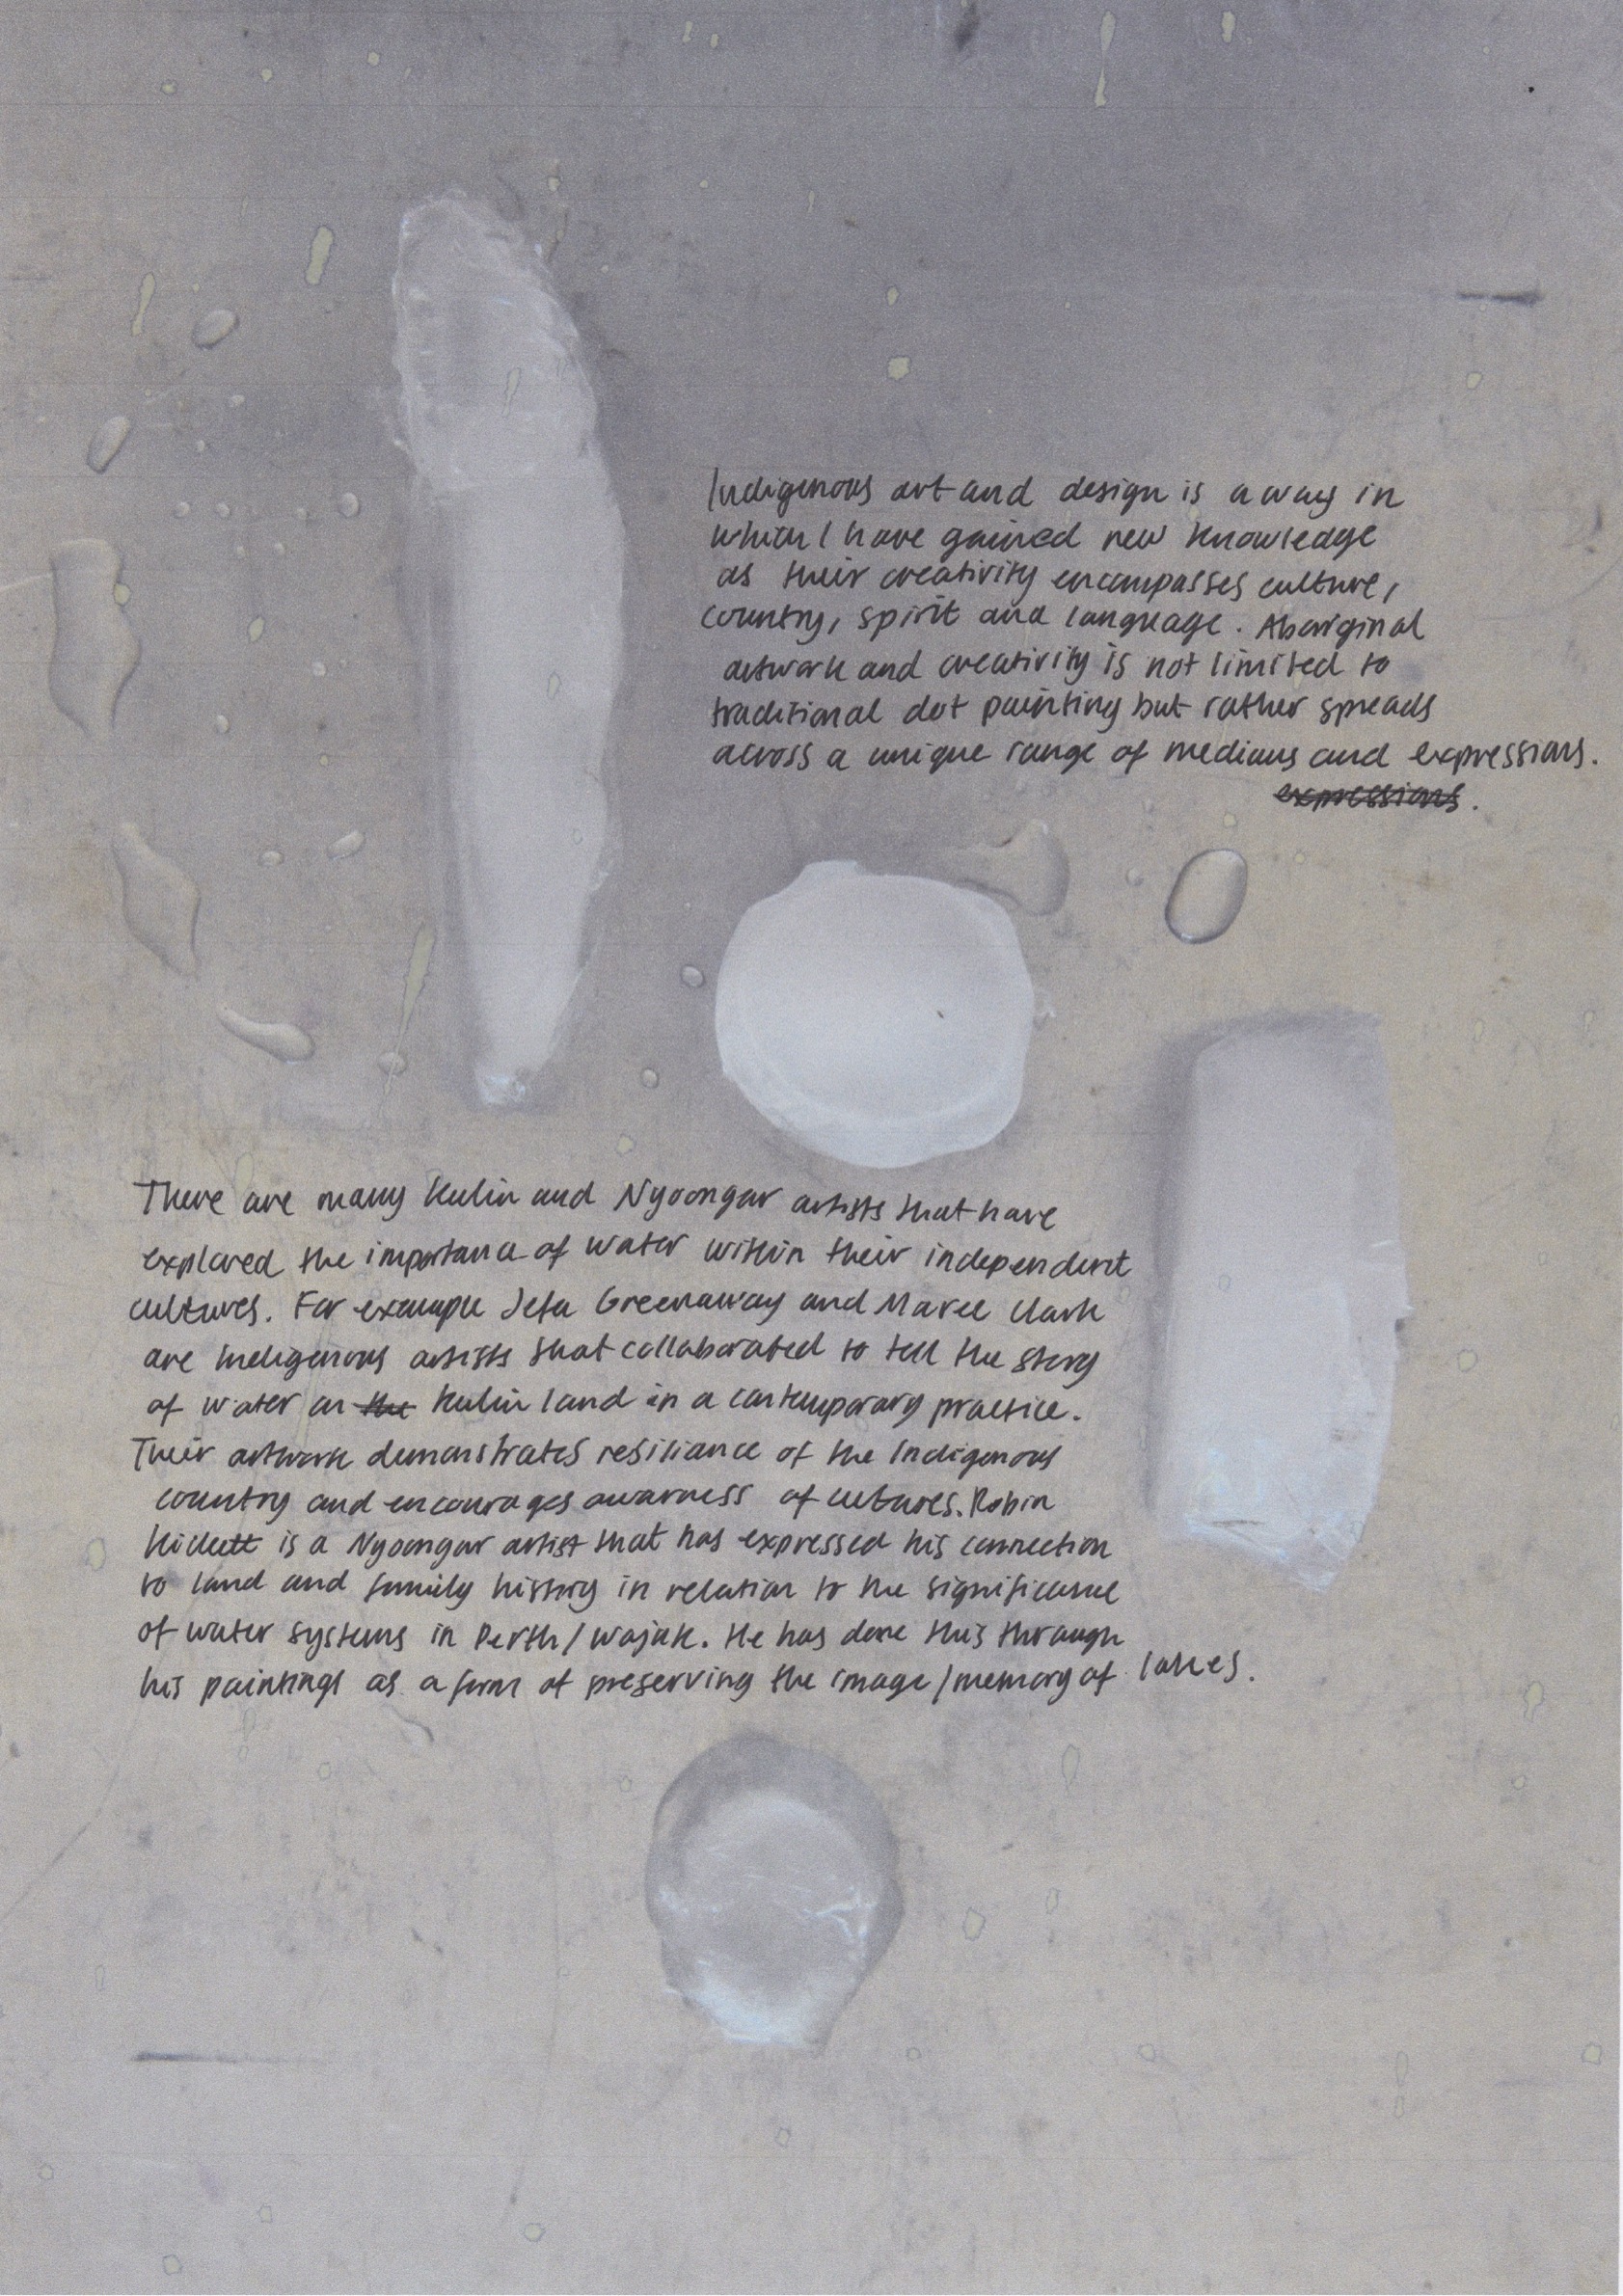 Indigenous art and design is a way in
which I have gained new knowledge
as their creativity encompasses culture,
country, spirit and language. Aboriginal
artwork and creativity is not limited to
traditional dot painting but rather spreads
across a unique range of mediums and expressions.
expressions.
There are many Kulin and Nyoongar artists that have
explored the importance of water within their independent
cultures. For example Jefa Greenaway and Maree Clark
are Indigenous artists that collaborated to tell the story
of water on the Kulin land in a contemporary practice.
Their artwork demonstrates resiliance of the Indigenous
country and encourages awarness of cultures. Robin
is a Nyoongar artist that has expressed his connection
to land and family history in relation to the significance
of water systems in Perth/Wajuk. He has done this through
his paintings as a form of preserving the image/memory of lakes.